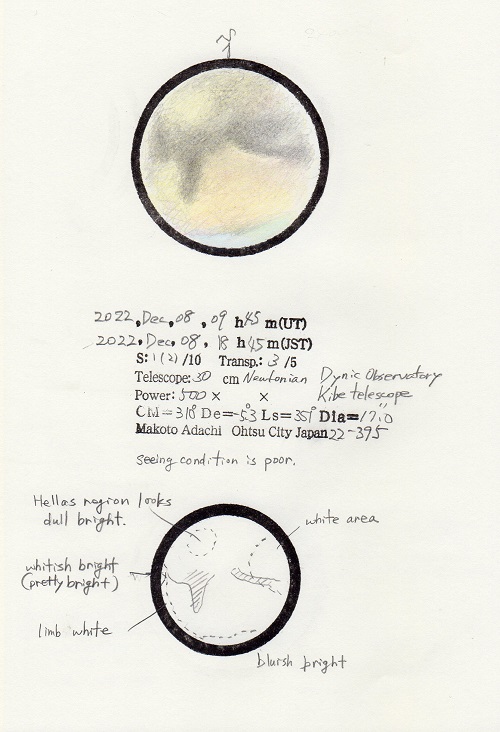 2022, Dec, 08, 09 h 45 m(UT)
2022, Dec, 08, 18 h 45 m(JST)
S: 1(2) /10 Transp.: 3 /5
Telescope: 30 cm Newtonian Dynic Observatory
Power: 500 × × Kibe telescope
CM=318° De=-5.3° Ls=351° Dia=17.″0
Makoto Adachi Ohtsu City Japan 22-395
seeing condition is poor.
Hellas region looks
dull bright.
white area
whitish bright
(pretty bright)
limb white
bluish bright